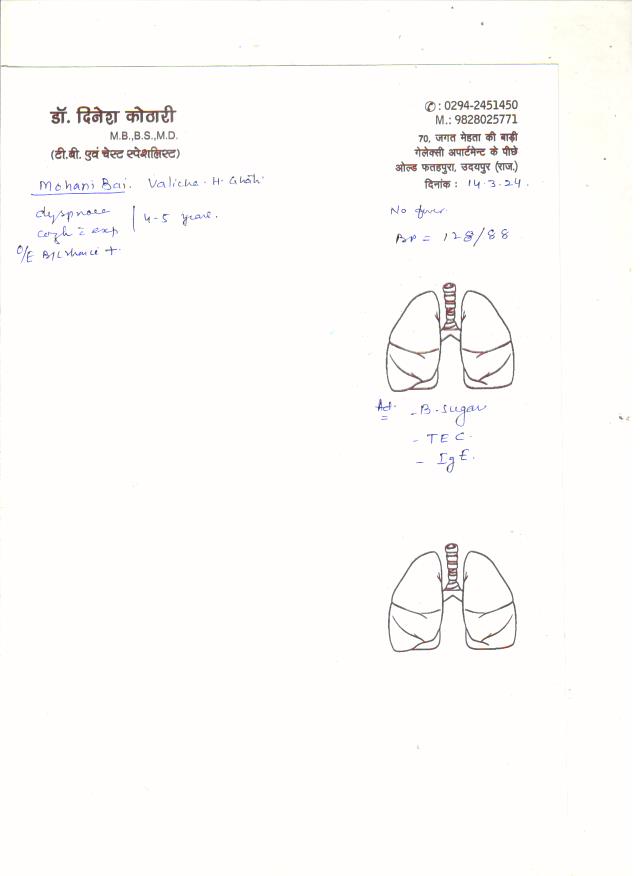 डॉ. दिनेश कोठारी
M.B.,B.S.,M.D.
(टी.बी. एवं चेस्ट स्पेशलिस्ट)
✆ : 0294-2451450
M.: 9828025771
70, जगत मेहता की बाड़ी
गेलेक्सी अपार्टमेन्ट के पीछे
ओल्ड फतहपुरा, उदयपुर (राज.)
दिनांक : 14.3.24.
Mohani Bai.
dyspnoea
cough = exp
4-5 years.
O/E B/L rhonchi +
No fever
BP = 128/88
Ad.
- B. Sugar
- TEC.
- IgE.